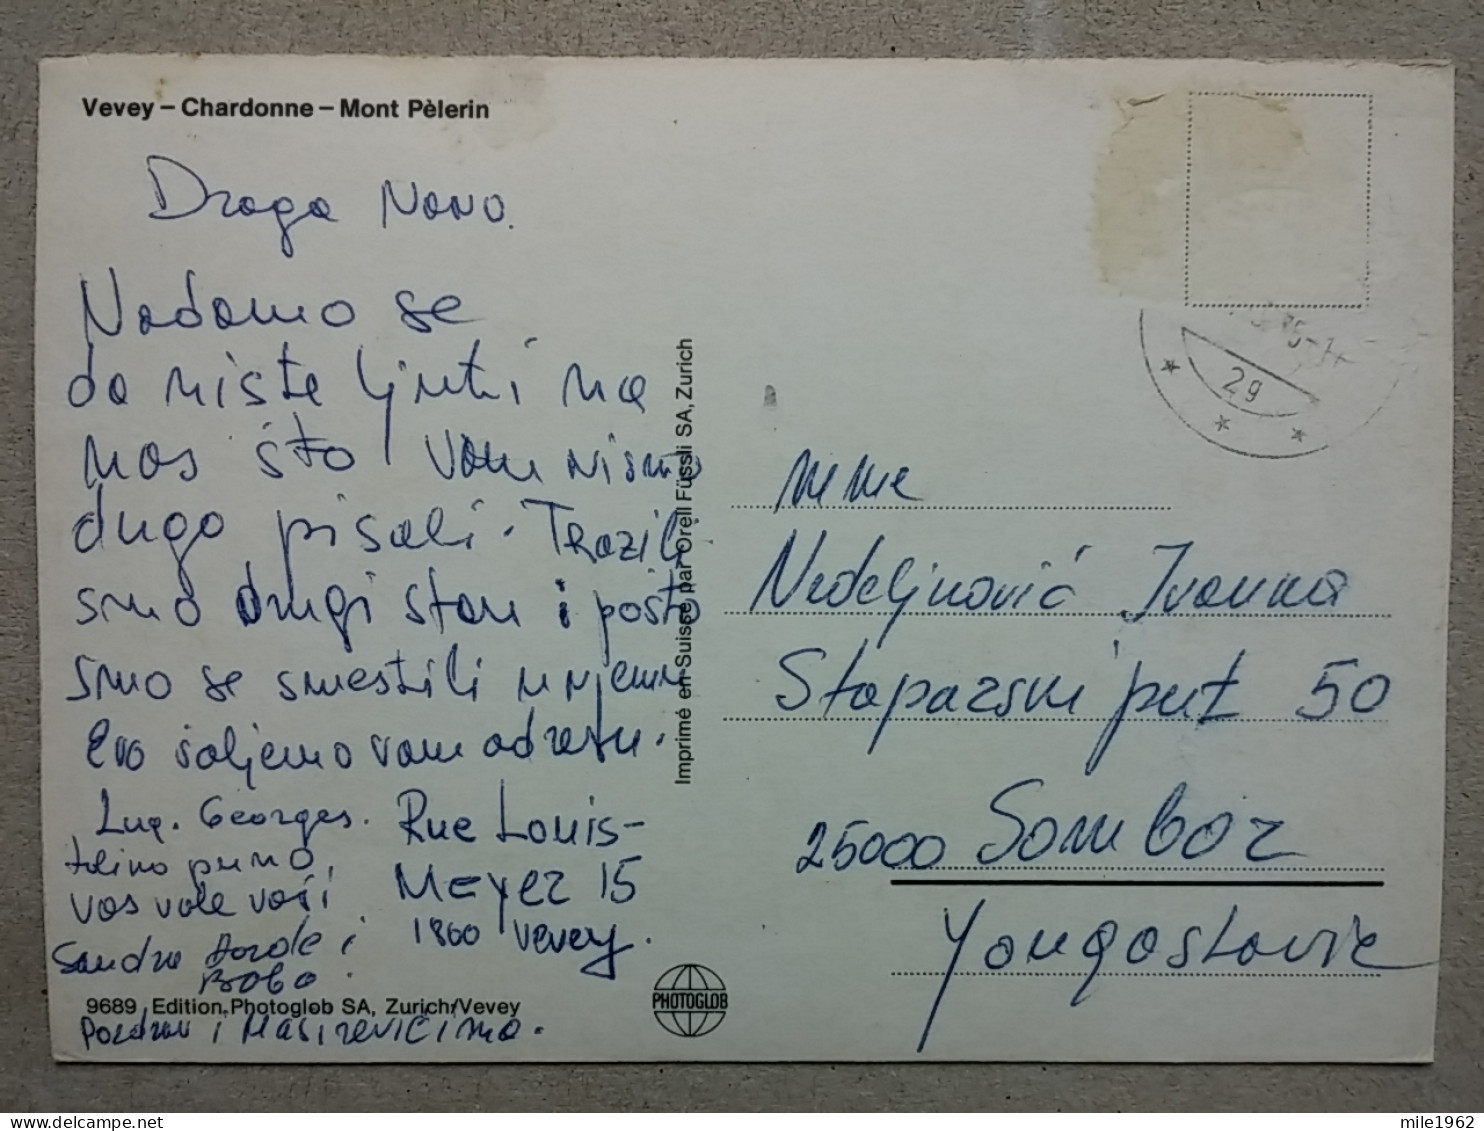 Vevey – Chardonne – Mont Pèlerin
Draga Nano.
Nadamo se
da niste ljuti na
nas što vam nismo
dugo pisali. Trazili
smo drugi stan i pošto
smo se smestili u njemu
Evo šaljemo vam adresu.
Lug. Georges.
Rue Louis-
Meyer 15
1800 Vevey.
puno
vas vole vaši
Sandra i
Bobo.
Pozdrav i
9689 Edition Photoglob SA, Zurich/Vevey
Imprimé en Suisse par Orell Füssli SA, Zurich
PHOTOGLOB
29
mme
Nedeljnović Ivanka
Staparski put 50
25000 Sombor
Yougoslavie
mile1962